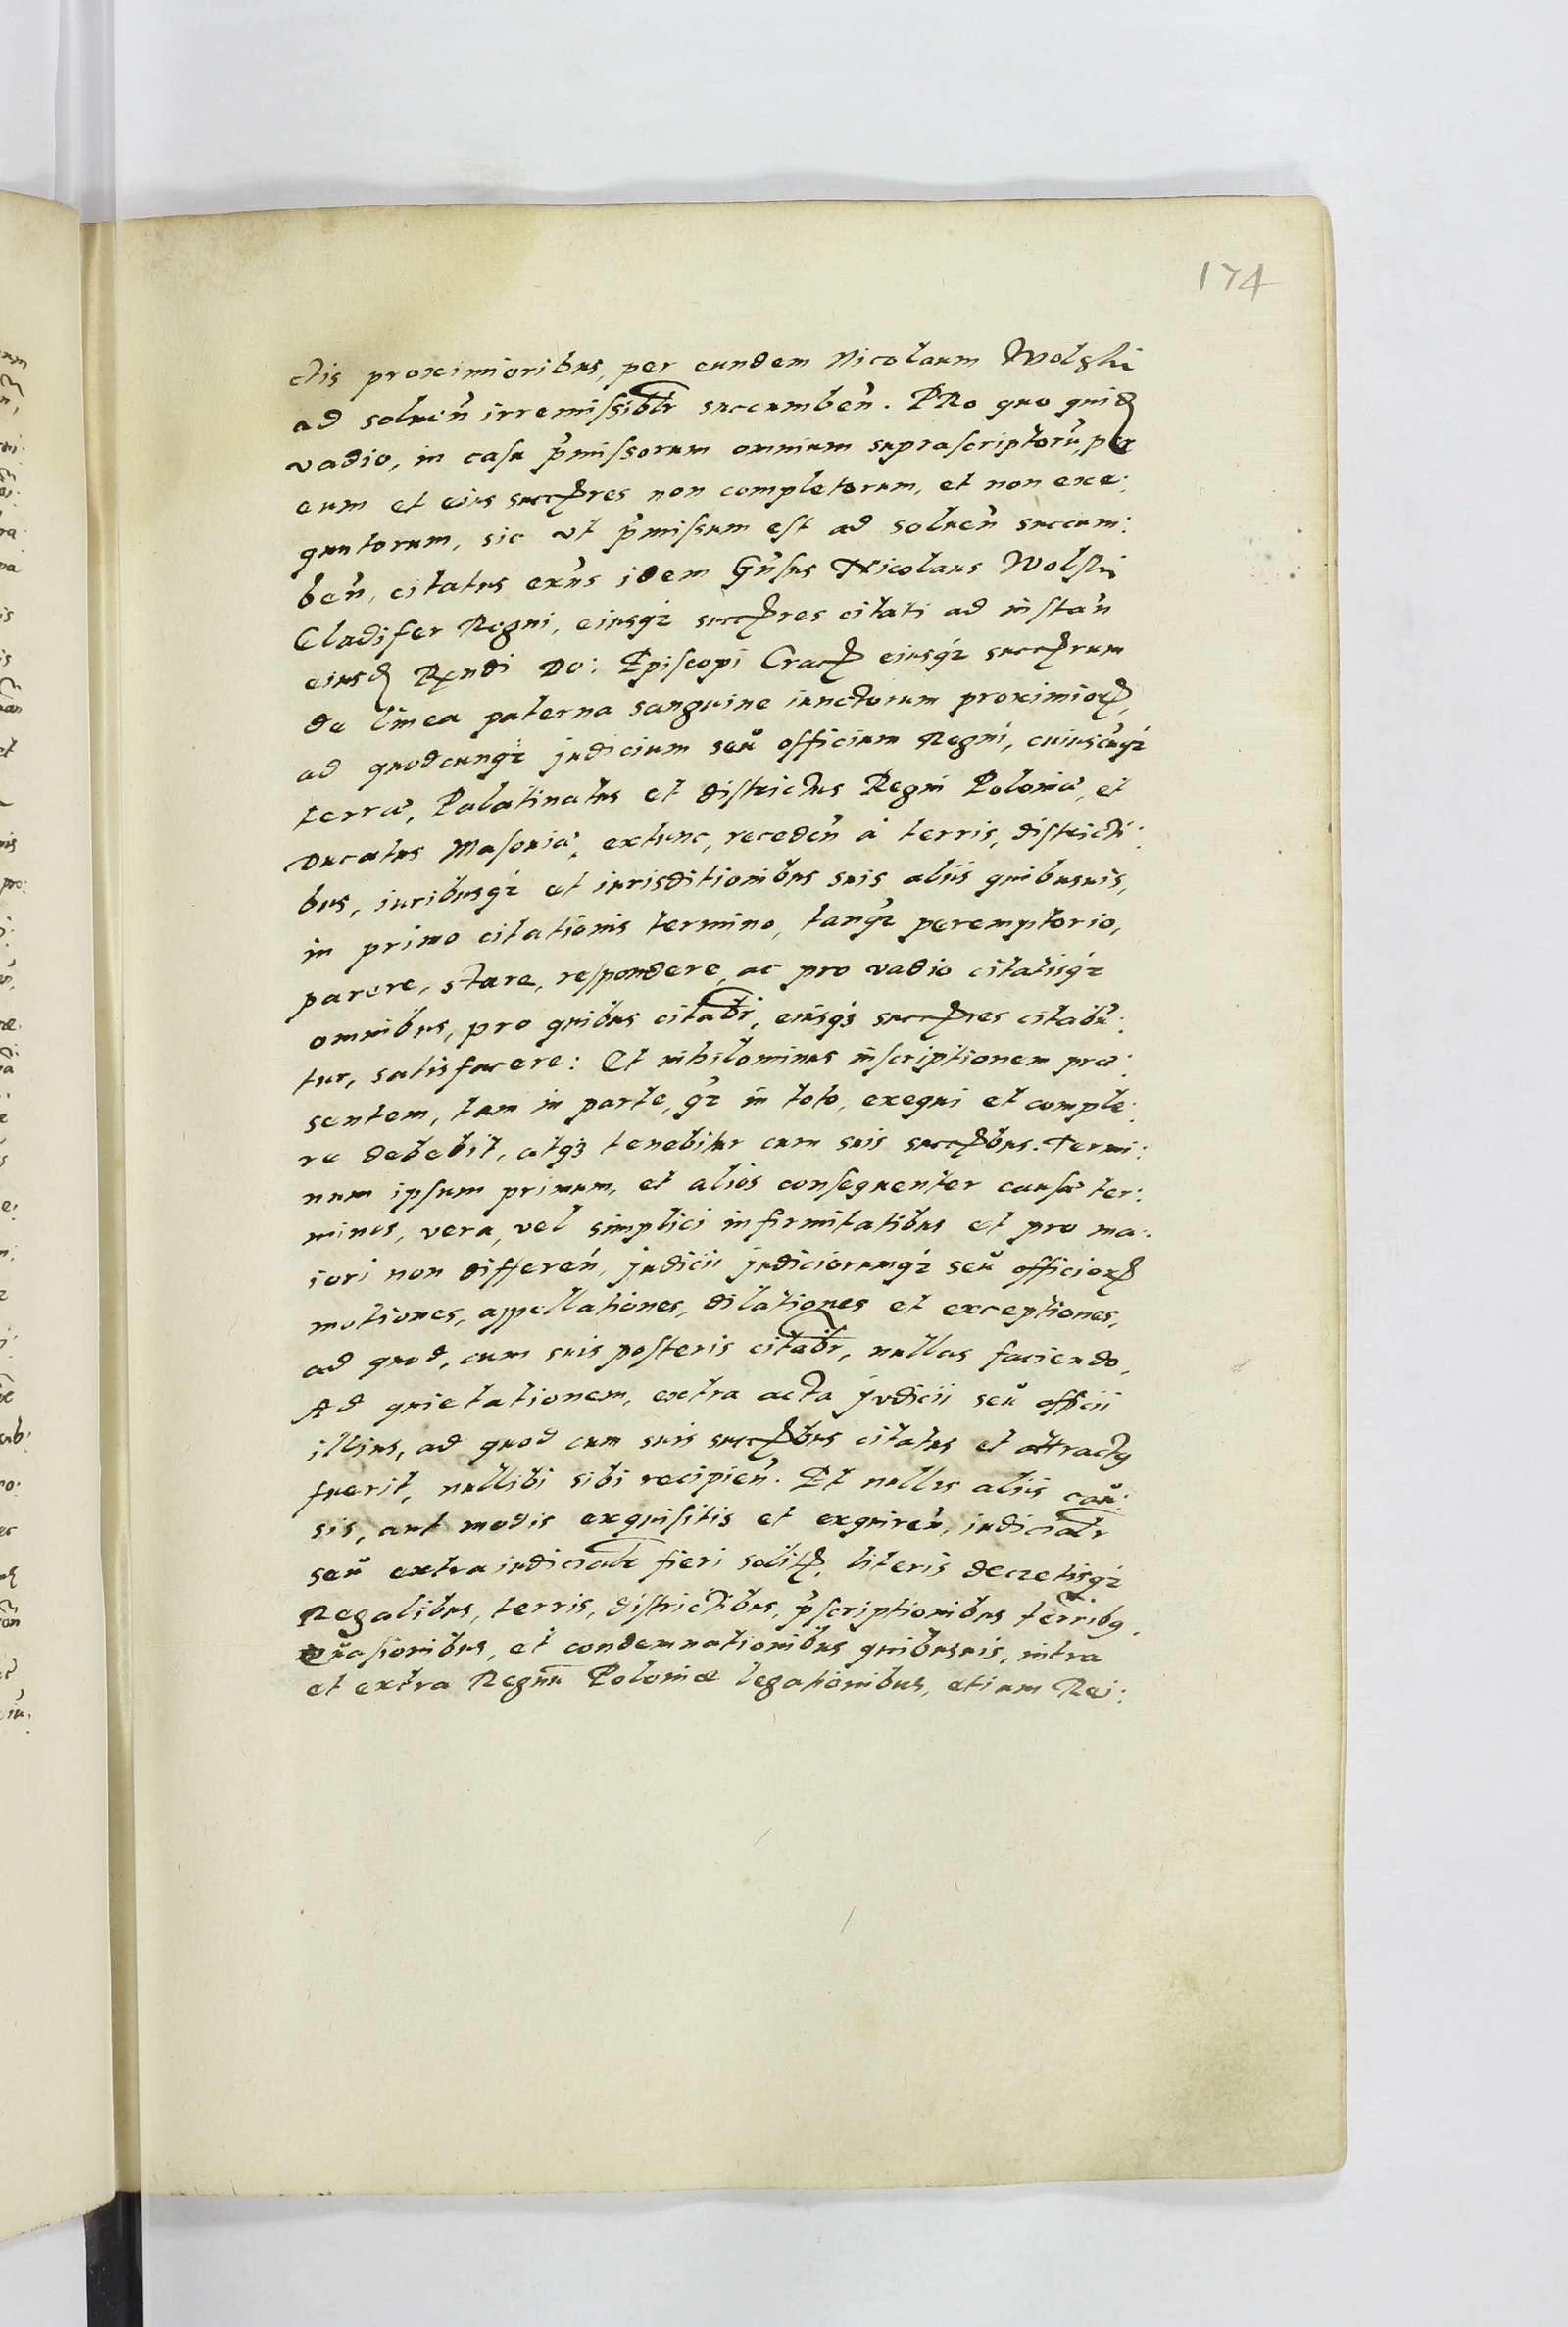 174
ctis proximioribus, per eundem Nicolaum Wolski
ad soluen̄ irremissiblr succumben̄. PRo quo quiđ
vadio, in casu p̄missorum omnium suprascriptorū, per
eum et eius succꝝres non completorum, et non exe:
qutorum, sic vt p̄missum est ad soluen̄ succum:
ben̄, citatus exn̄s idem Gn̄sus Nicolaus Wolski
Eladifer Regni, eiusq́ꝫ succꝝres citati ad instan̄
eiusđ Rꝝndi Do: Episcopi Cracꝝ eiusq́ꝫ succꝝrum
de linea paterna sanguine iunctorum proximioꝝ,
ad quodcunq́ꝫ judicium seŭ officium Regni, cuiuscūq́ꝫ
terræ, Palatinatus et districtus Regni Poloniæ, et
Ducatus Masouiæ, extunc, receden̄ à terris, districti:
bus, iuribusq́ꝫ et iurisditionibus suis aliis quibusuis,
in primo citationis termino, tanq́ꝫ peremptorio,
parere, stare, respondere, ac pro vadio citatisq́ꝫ
omnibus, pro quibus citabr̄, eiusqꝫ succꝝres citabŭ:
tur, satisfacere: Et nihilominus inscriptionem præ:
sentem, tam in parte, q́ꝫ in toto, exequi et comple:
re debebit, atqꝫ tenebitur cum suis succꝝbus. Termi:
num ipsum primum, et alios consequenter causæ ter:
minos, vera, vel simplici infirmitatibus et pro ma:
iori non differen̄, judicii judiciorumq́ꝫ seŭ officioꝝ
motiones, appellationes, dilationes et exceptiones,
ad quod, cum suis posteris citabr̄, nullas faciendo.
Ad quietationem, extra acta judicii seŭ officii
illius, ad quod cum suis succꝝbus citatus et attractꝰ
fuerit, nullibi sibi recipien̄. Et nullis aliis caŭ:
sis, aut modis exquisitis et exquiren̄, iudicialr̄
seŭ extraiudicialr̄ fieri solitꝝ, literis decretisq́ꝫ
Regalibus, terris, districtibus, p̄scriptionibus terribꝰ.
Euasionibus, et condemnationibus quibusuis, intra
et extra Regnū Poloniæ legationibus, etiam Rei: